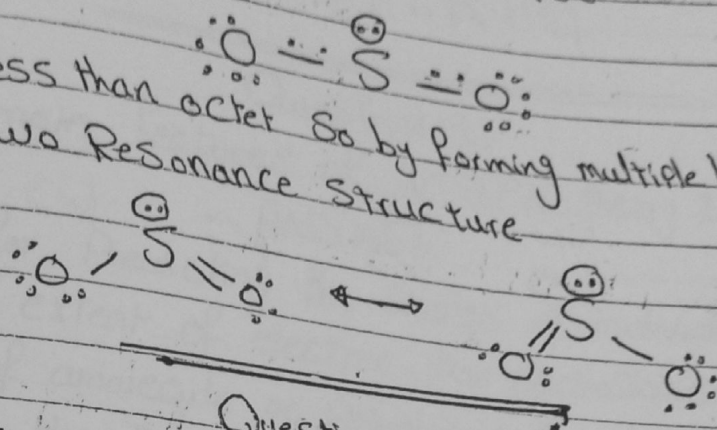 O S O
ess than octet so by forming multiple
wo Resonance structure
S S
O O O O